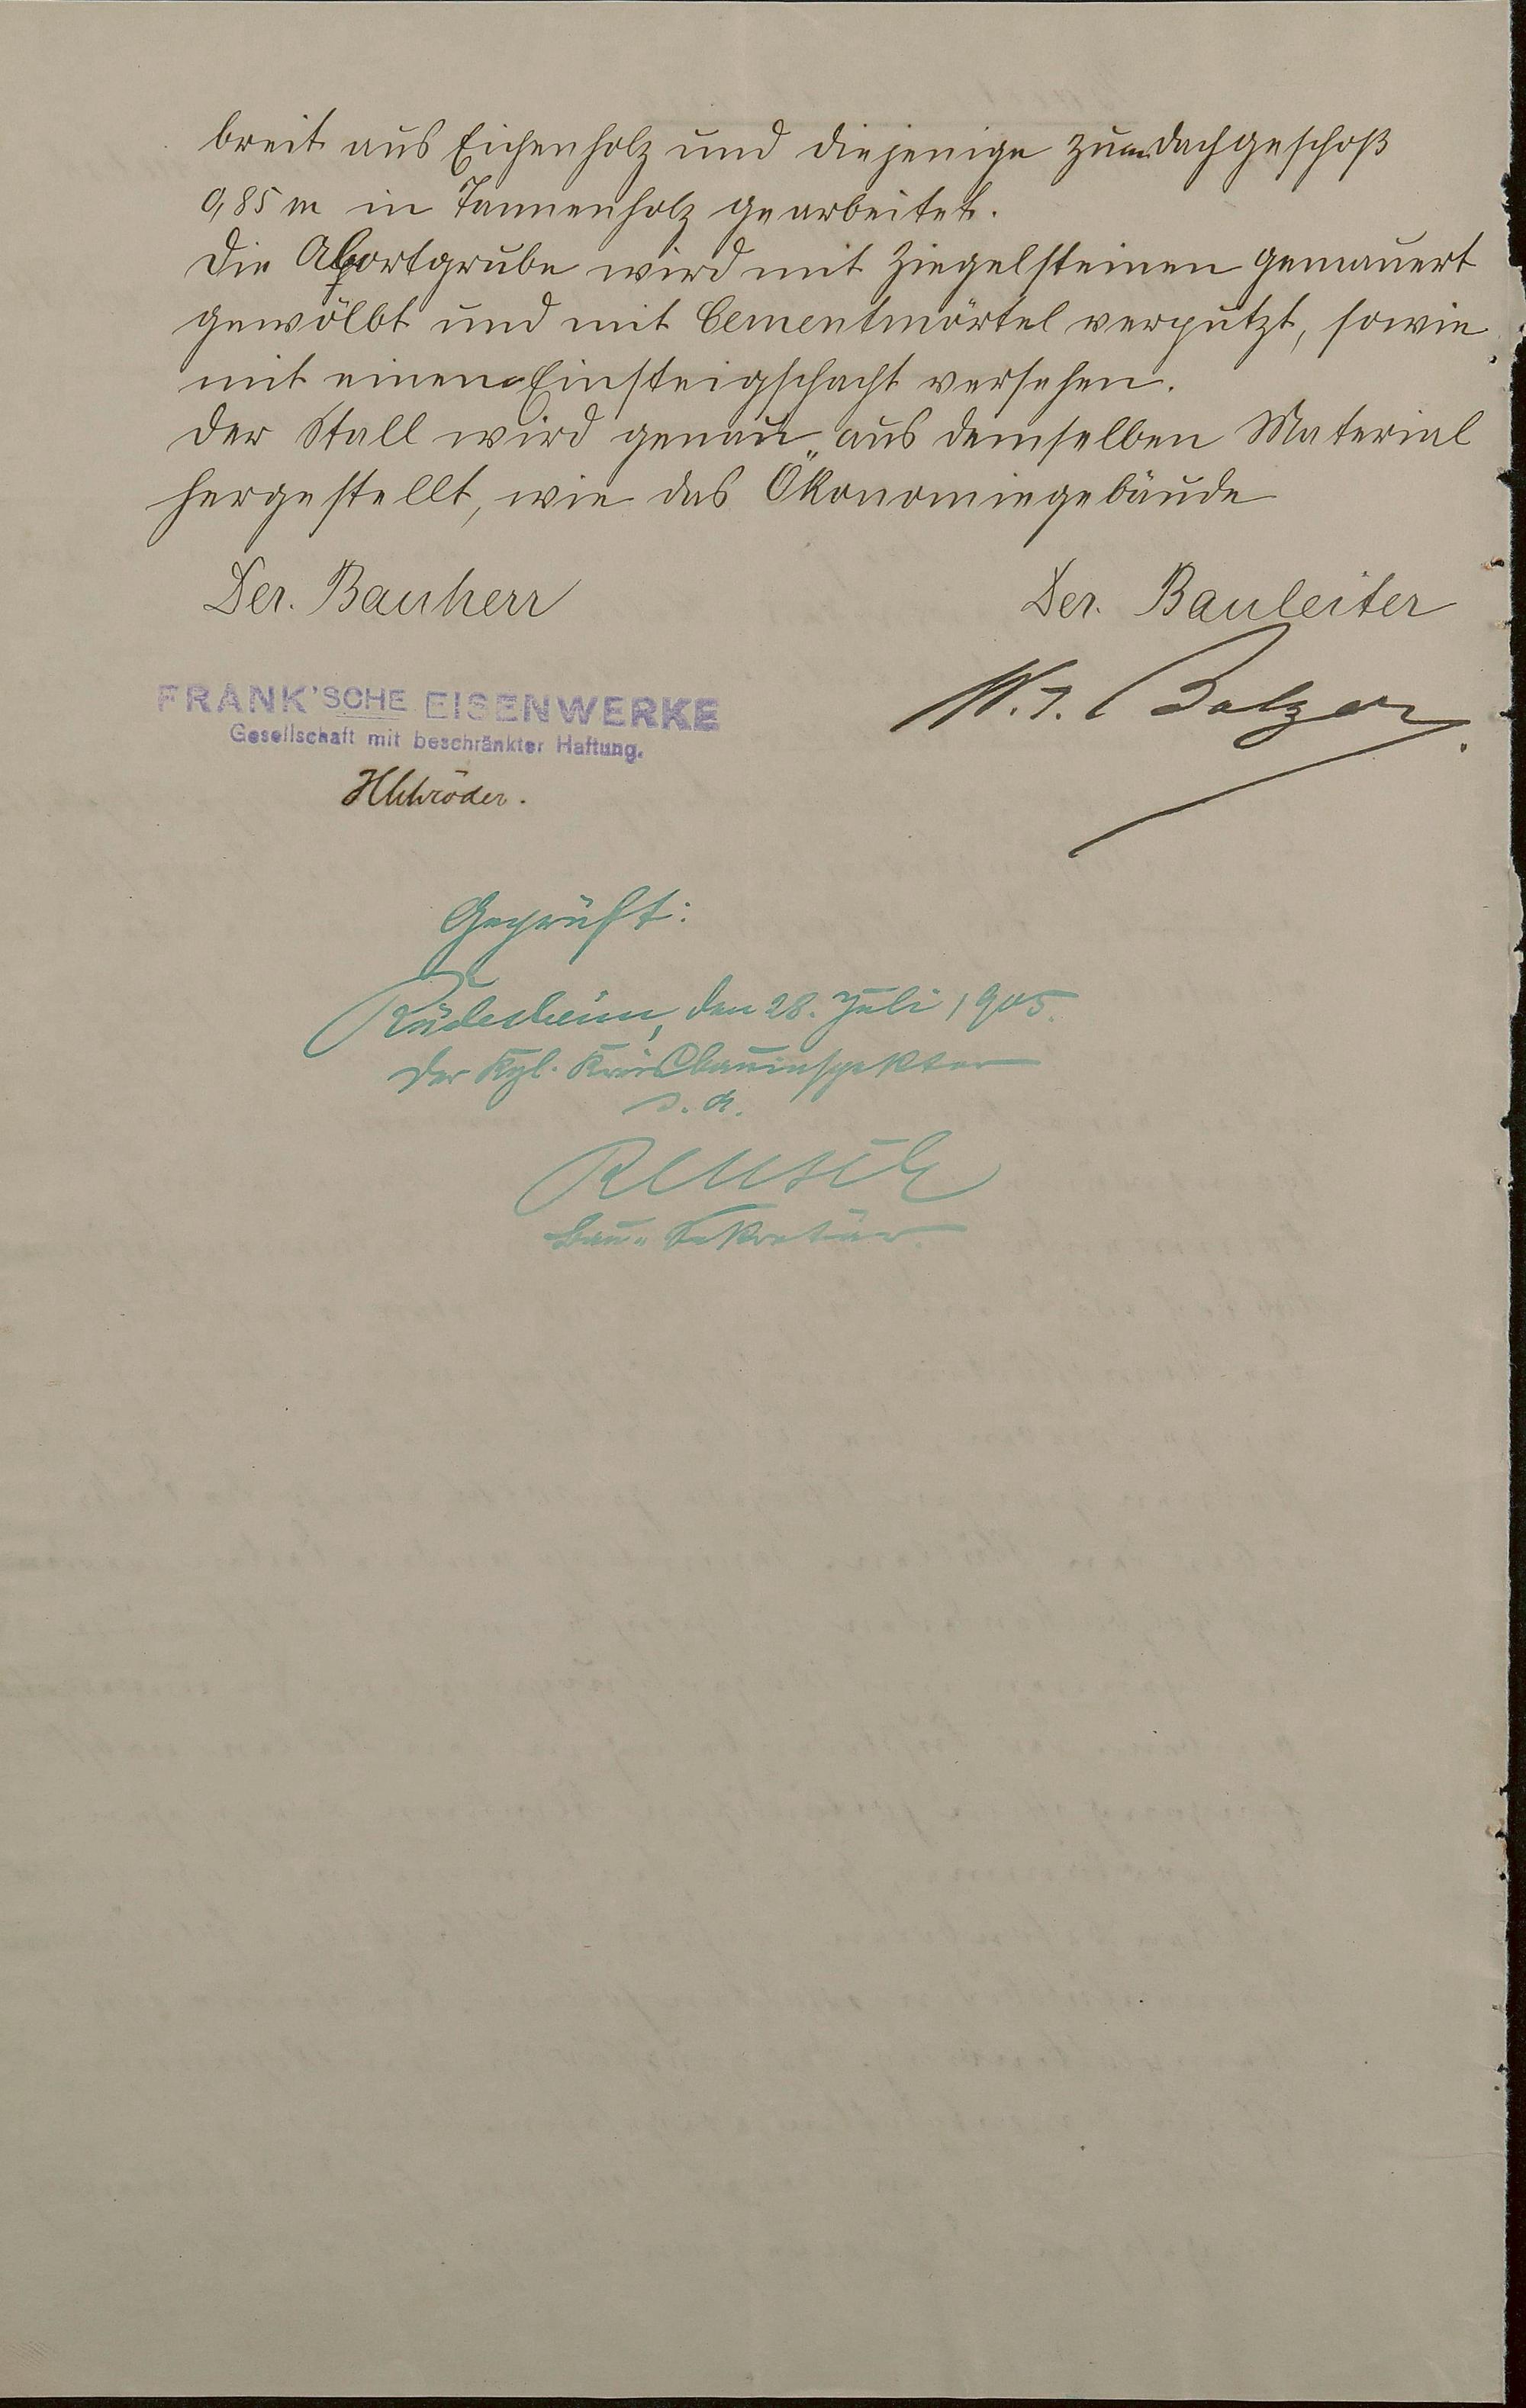 breit aus Eichenholz und diejenige zum Dachgeschoß
0,85 m in Tannenholz gearbeitet.
Die Abortgrube wird mit Ziegelsteinen gemauert
gewölbt und mit Cementmörtel verputzt, sowie
mit einem Einsteigschacht versehen.
Der Stall wird genau aus demselben Material
hergestellt, wie das Ökonomiegebäude
Der. Bauherr
Der. Bauleiter
FRANK'SCHE EISENWERKE
Gesellschaft mit beschränkter Haftung.
HSchröder.
W. J. Balzer.
Geprüft:
Rüdesheim, den 28. Juli 1905.
Der Kgl. Kreisbauinspektor
Reusch
Bau-Sekretär.